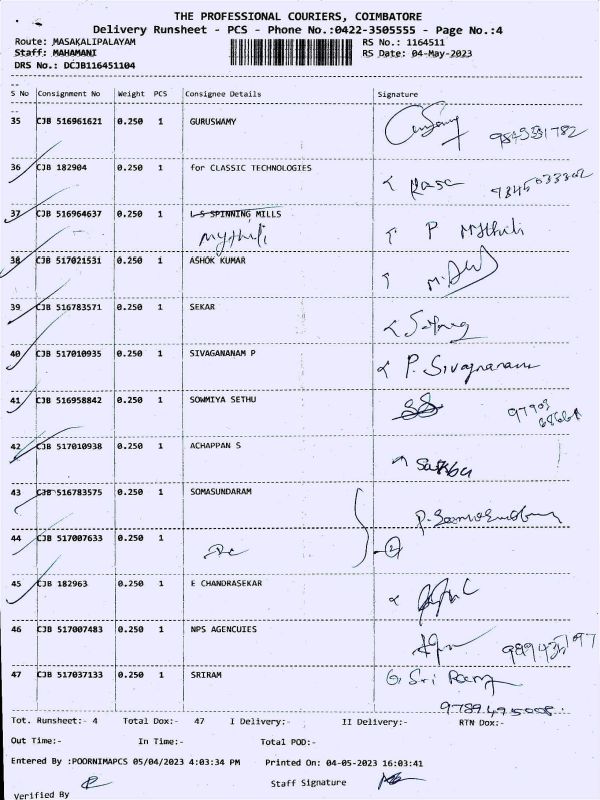 THE PROFESSIONAL COURIERS, COIMBATORE
Delivery Runsheet - PCS - Phone No.:0422-3505555 - Page No.:4
Route: MASAKALIPALAYAM RS No.: 1164511
Staff: MAHAMANI RS Date: 04-May-2023
DRS No.: DCJB116451104
S No Consignment No Weight PCS Consignee Details Signature
35 CJB 516961621 0.250 1 GURUSWAMY
36 CJB 182904 0.250 1 for CLASSIC TECHNOLOGIES
37 CJB 516964637 0.250 1 L S SPINNING MILLS
Mythili P Mythili
38 CJB 517021531 0.250 1 ASHOK KUMAR
39 CJB 516783571 0.250 1 SEKAR
40 CJB 517010935 0.250 1 SIVAGANANAM P
P. Sivagnanam
41 CJB 516958842 0.250 1 SOWMIYA SETHU
42 CJB 517010938 0.250 1 ACHAPPAN S
43 CJB 516783575 0.250 1 SOMASUNDARAM
44 CJB 517007633 0.250 1
45 CJB 182963 0.250 1 E CHANDRASEKAR
46 CJB 517007483 0.250 1 NPS AGENCUIES
47 CJB 517037133 0.250 1 SRIRAM G. Sri Ram
9789495008
Tot. Runsheet:- 4 Total Dox:- 47 I Delivery:- II Delivery:- RTN Dox:-
Out Time:- In Time:- Total POD:-
Entered By :POORNIMAPCS 05/04/2023 4:03:34 PM Printed On: 04-05-2023 16:03:41
Staff Signature
Verified By